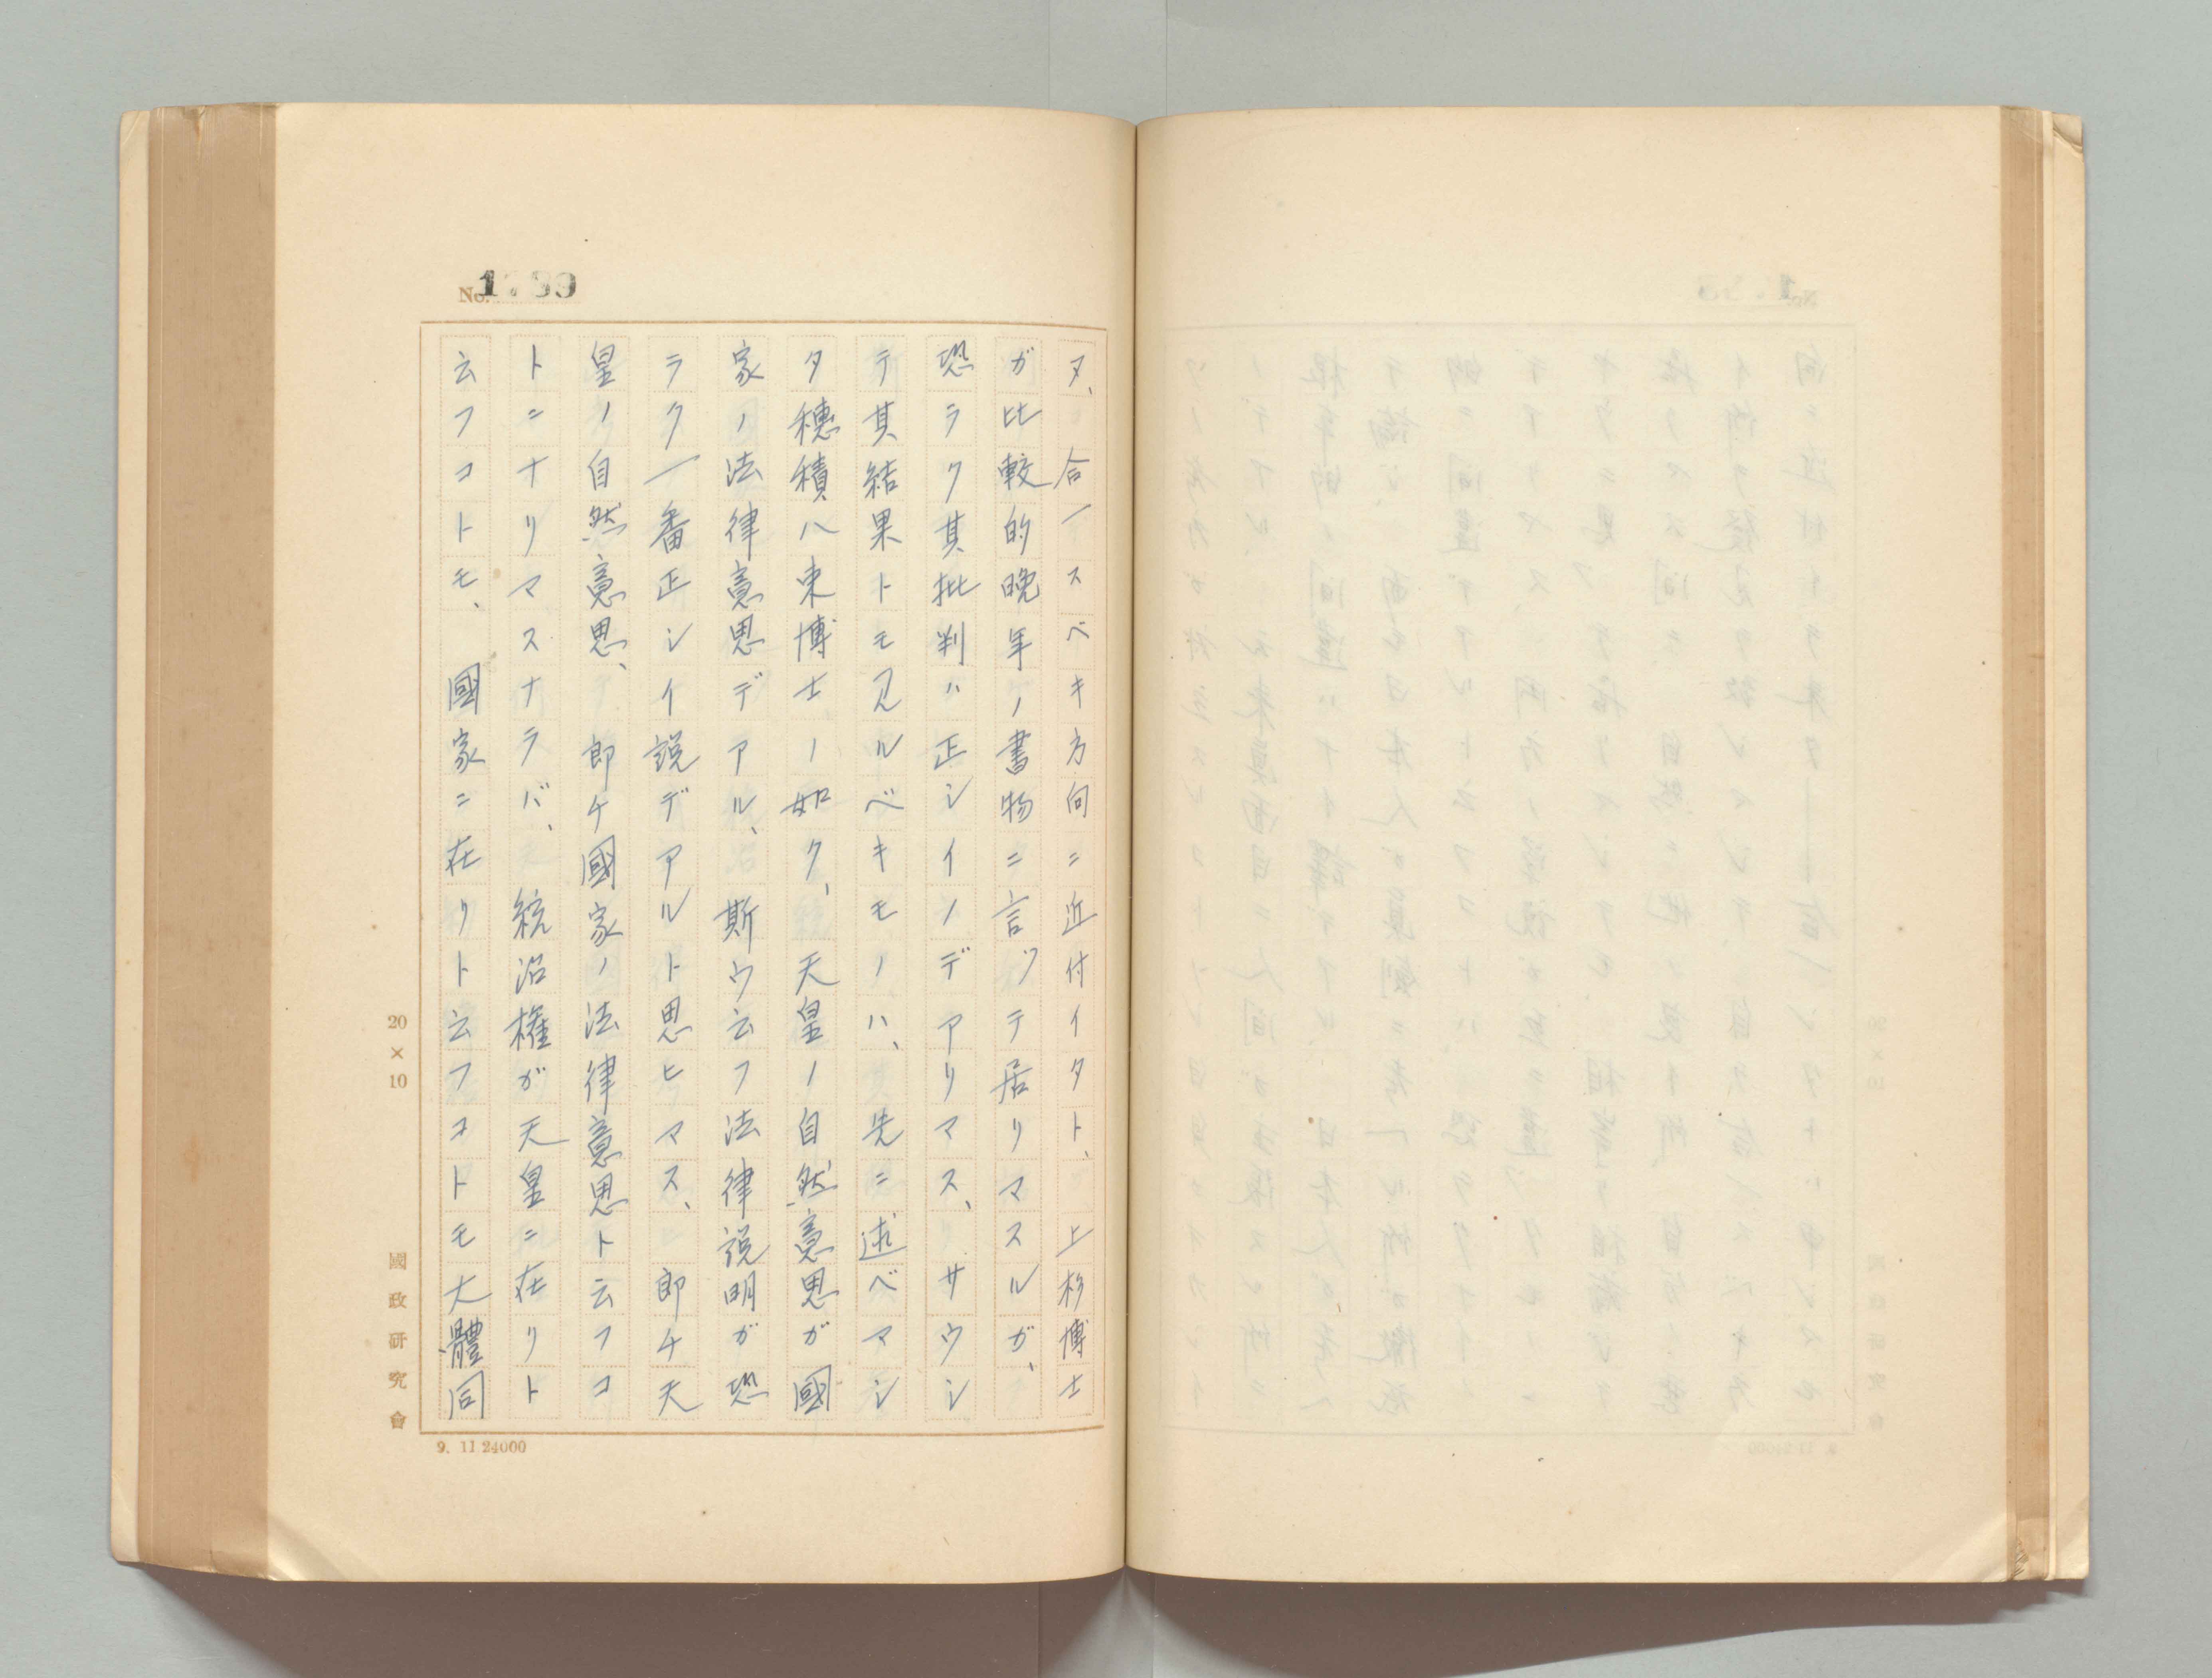 ヌ、合一スベキ方向ニ近付イタト、上杉博士
ガ比較的晩年ノ書物ニ言ツテ居リマスルガ、
恐ラク其批判ハ正シイノデアリマス、サウシ
テ其結果トモ見ルベキモノハ、先ニ述ベマシ
タ穗積八束博士ノ如ク、天皇ノ自然意思ガ國
家ノ法律意思デアル、斯ウ云フ法律説明ガ恐
ラク一番正シイ説デアルト思ヒマス、即チ天
皇ノ自然意思、即チ國家ノ法律意思ト云フコ
トニナリマスナラバ、統治權ガ天皇ニ在リト
云フコトモ、國家ニ在リト云フコトモ大體同
No.
20×10
國政研究會
9. 11 24000